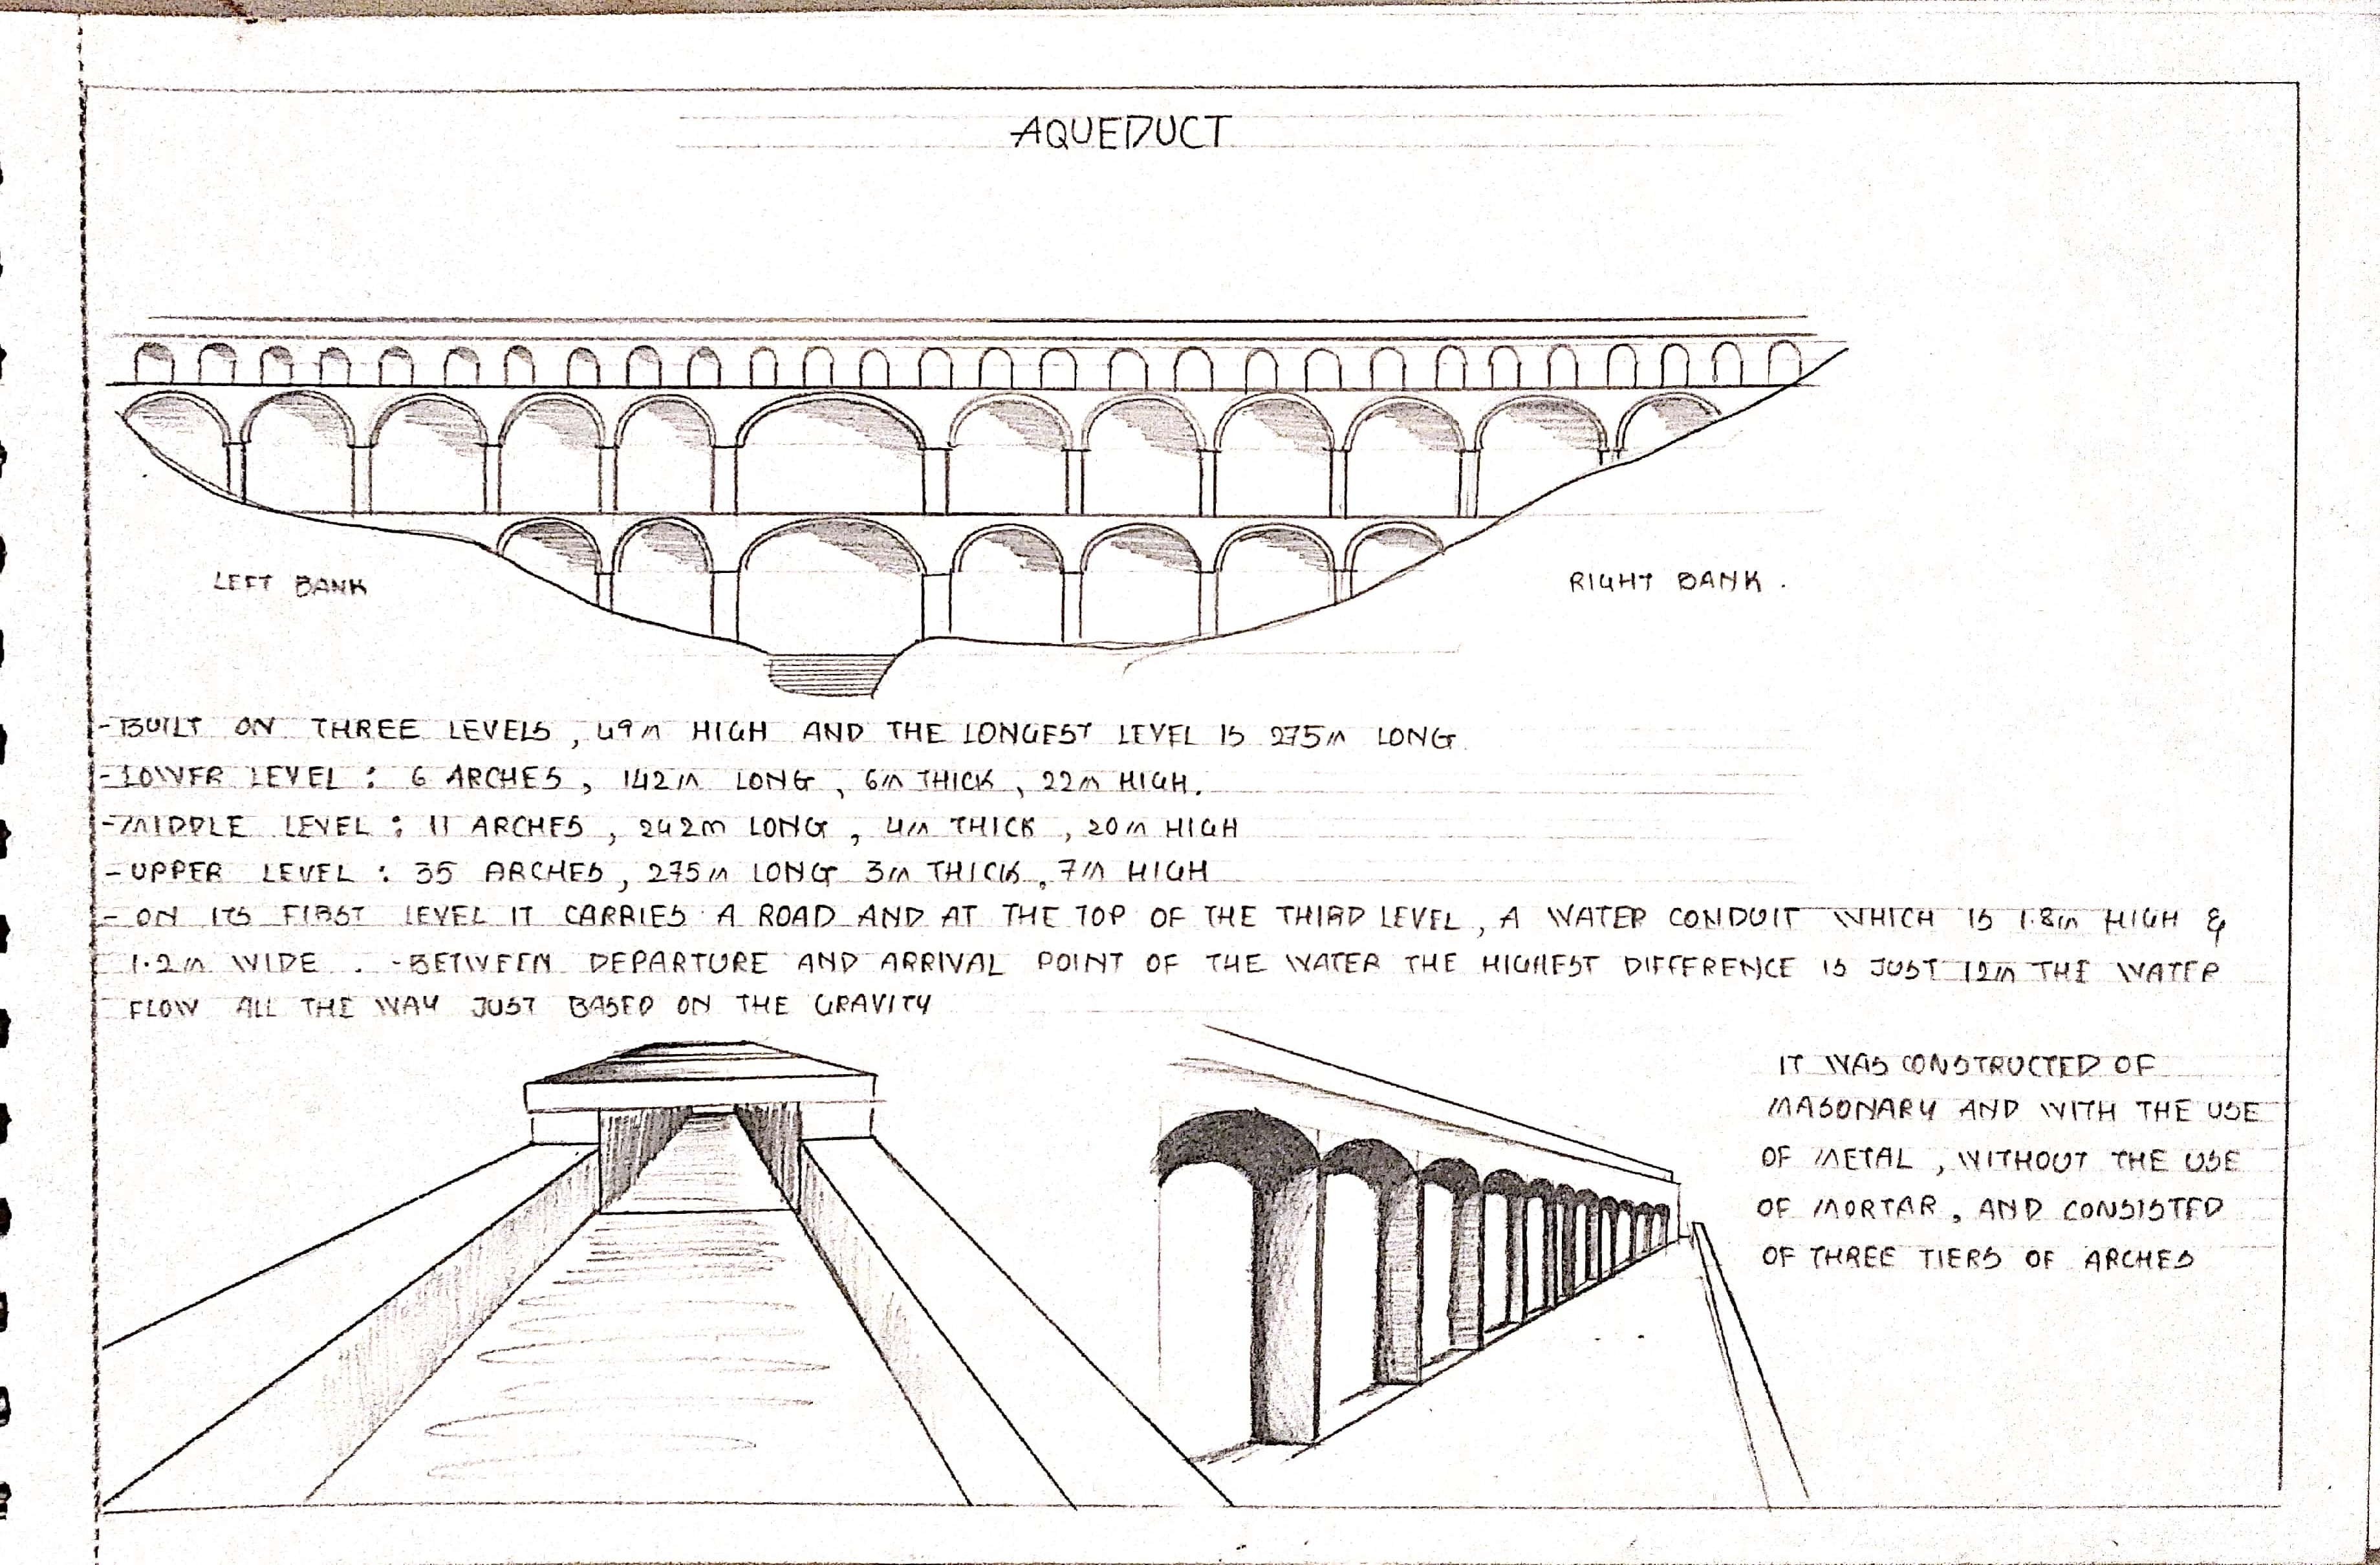 AQUEDUCT
LEFT BANK
RIGHT BANK .
-BUILT ON THREE LEVELS , 49m HIGH AND THE LONGEST LEVEL IS 275m LONG
-LOWER LEVEL : 6 ARCHES , 142m LONG , 6m THICK , 22m HIGH.
-MIDDLE LEVEL : 11 ARCHES , 242m LONG , 4m THICK , 20m HIGH
-UPPER LEVEL : 35 ARCHES , 275m LONG 3m THICK , 7m HIGH
- ON ITS FIRST LEVEL IT CARRIES A ROAD AND AT THE TOP OF THE THIRD LEVEL , A WATER CONDUIT WHICH IS 1.8m HIGH &
1.2m WIDE . -BETWEEN DEPARTURE AND ARRIVAL POINT OF THE WATER THE HIGHEST DIFFERENCE IS JUST 12m THE WATER
FLOW ALL THE WAY JUST BASED ON THE GRAVITY
IT WAS CONSTRUCTED OF
MASONARY AND WITH THE USE
OF METAL , WITHOUT THE USE
OF MORTAR , AND CONSISTED
OF THREE TIERS OF ARCHES